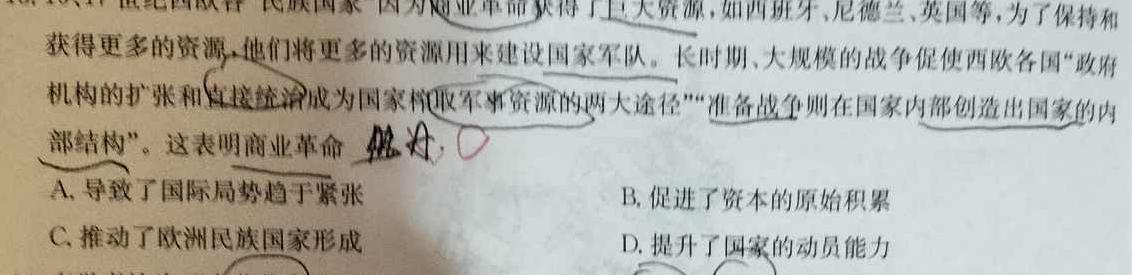 世纪西欧各“民族国家”因为商业革命获得了巨大资源,如西班牙、尼德兰、英国等,为了保持和
获得更多的资源,他们将更多的资源用来建设国家军队。长时期、大规模的战争促使西欧各国“政府
机构的扩张和直接统治成为国家榨取军事资源的两大途径”“准备战争则在国家内部创造出国家的内
部结构”。这表明商业革命
A. 导致了国际局势趋于紧张
B. 促进了资本的原始积累
C. 推动了欧洲民族国家形成
D. 提升了国家的动员能力